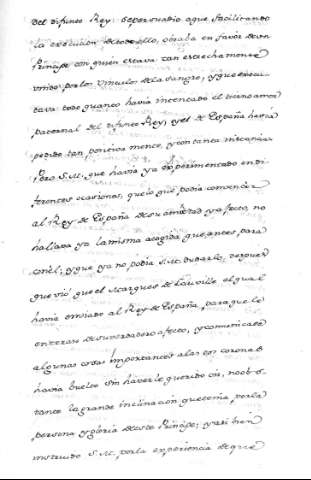 del difunto Rey: se persuadio a que facilitando
la execucion de todo ello, obraba en favor de un
Principe con quien estava tan estrechamente
unido por los vinculos de la sangre, y que execu-
tava todo quanto havia intentado el tierno amor
paternal del difunto Rey, y el de España havia
pedido tan poneiosamente, y con tanta instancia.
Pero S.M. que havia ya experimentado en di-
ferentes ocasiones, que lo que podia convencer
al Rey de España de su amistad y afecto, no
hallava ya la misma acogida que antes, para
con el, y que ya no podia S.M. dudarlo, despues
que vió que el Marques de Louville el qual
havia enviado al Rey de España, para que le
enterase de su verdadero afecto, y comunicase
algunas cosas importantes a las dos coronas
havia buelto sin haverle querido oir, no obs-
tante la grande inclinación que tenia, por la
persona y gloria de este Principe; y assi bien
instruido S.M. por la experiencia de que